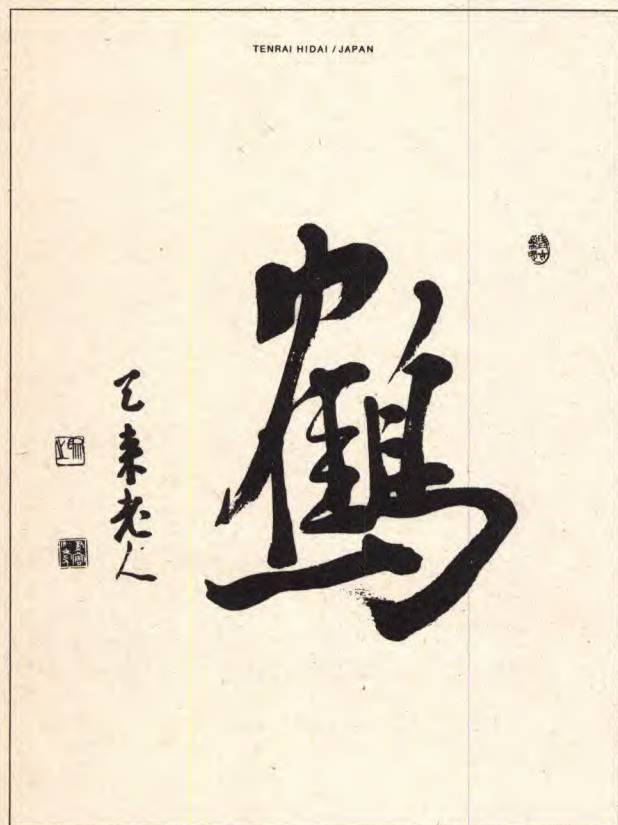 TENRAI HIDAI / JAPAN
鶴
天来老人